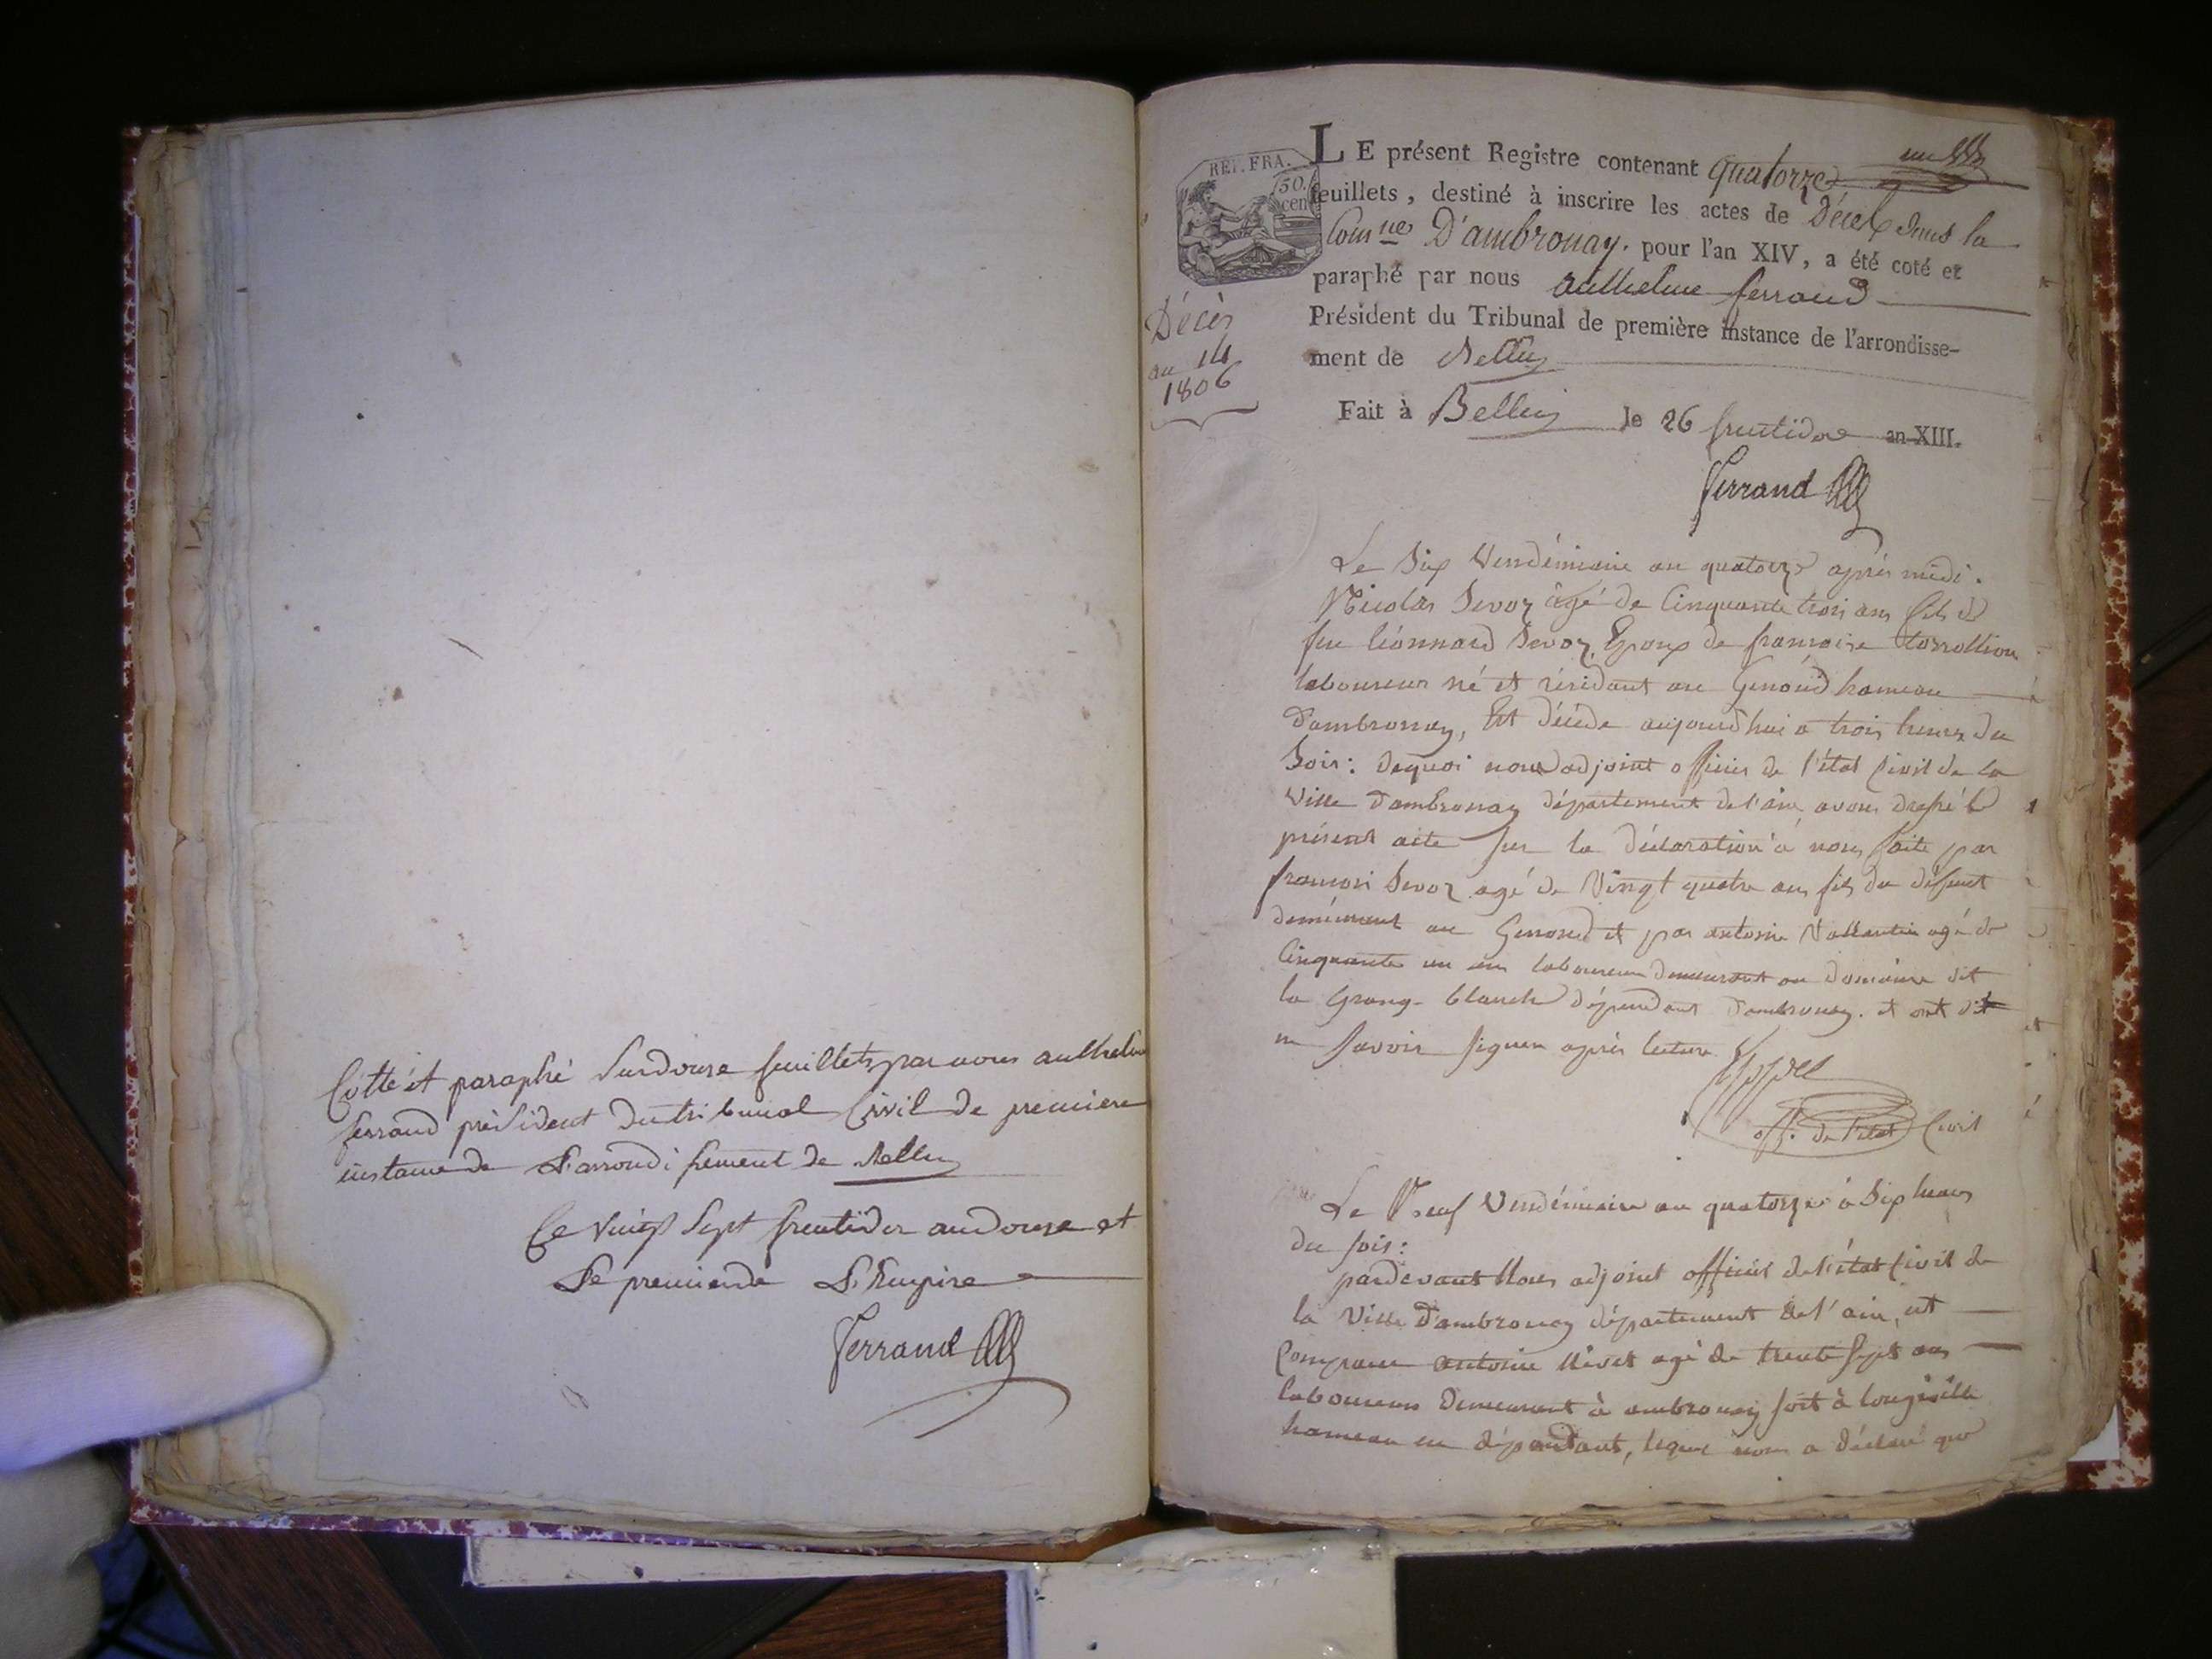 Cotté et paraphé Sur douze feuillets par nous anthelme
ferrand président du tribunal Civil de premiere
instance de L'arrondissement de Belley
Ce vingt Sept fructidor an douze et
Le premier de L'Empire
Ferrand
REP. FRA.
50.
cen
Décès
an 14
1806
LE présent Registre contenant quatorze
feuillets, destiné à inscrire les actes de Décès dans la
Comune D'ambronay. pour l'an XIV, a été coté et
paraphé par nous anthelme ferrand
Président du Tribunal de première instance de l'arrondisse-
ment de Belley
Fait à Belley le 26 fructidor an XIII.
Ferrand
Le Six Vendémiaire an quatorze après midi.
Nicolas Sevoz âgé de Cinquante trois ans fils de
feu Léonnard Sevoz, Epoux de francoise
laboureur né et résidant au Genoud hameau
d'ambronay, Est décédé aujourd'hui a trois heures du
Soir: dequoi nous adjoint officier de l'état Civil de la
Ville d'ambronay département de l'ain, avons dressé le
présent acte sur la déclaration à nous faite par
francois Sevoz agé de Vingt quatre ans fils du défunt
demeurant au Genoud et par antoine Vallantin agé de
Cinquante un ans laboureur demeurant au domaine dit
la Grange-blanche dépendant d'ambronay. et ont dit
ne Savoir Signer après lecture.
off. de l'état Civil
Le Neuf Vendémiaire an quatorze à Six heures
du soir:
pardevant Nous adjoint officier de l'état Civil de
la Ville d'ambronay département de l'ain, est
Comparu antoine Nivet agé de trente Sept ans
laboureur demeurant à ambronay soit à longeville
hameau en dépendant, lequel nous a déclaré que